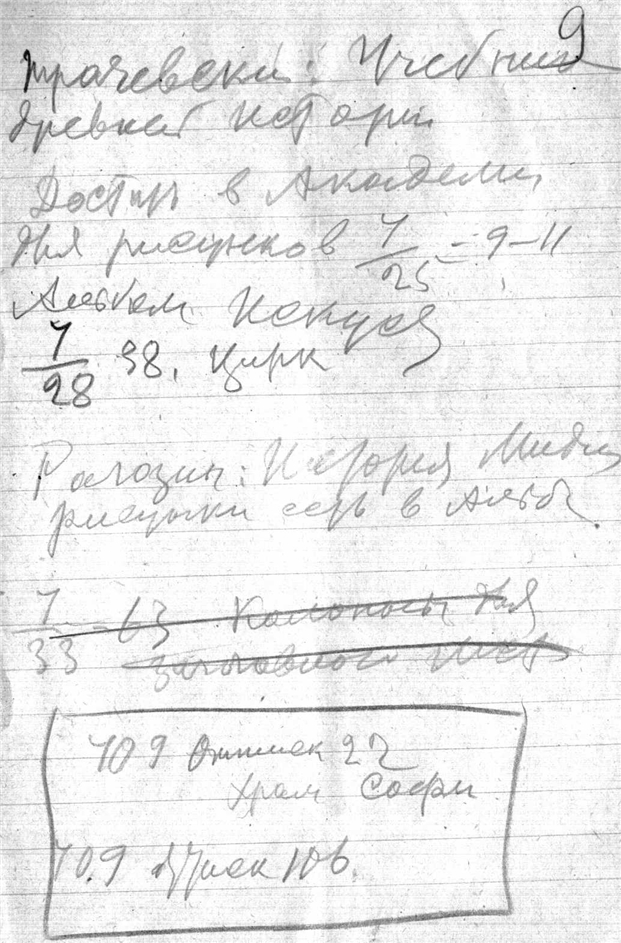 9
Трачевски: Учебник
древней истори
Достать в Академи
для рисунков 7/25 = 9-11
Альбом Искусс
7/28 38. Цирк
Рагозин: История Мидии
рисунки есть в Альб.
7/33 - 63 Колонны для
заглавного листа
709 Оттиск 22
Храм Софи
709 оттиск 106.